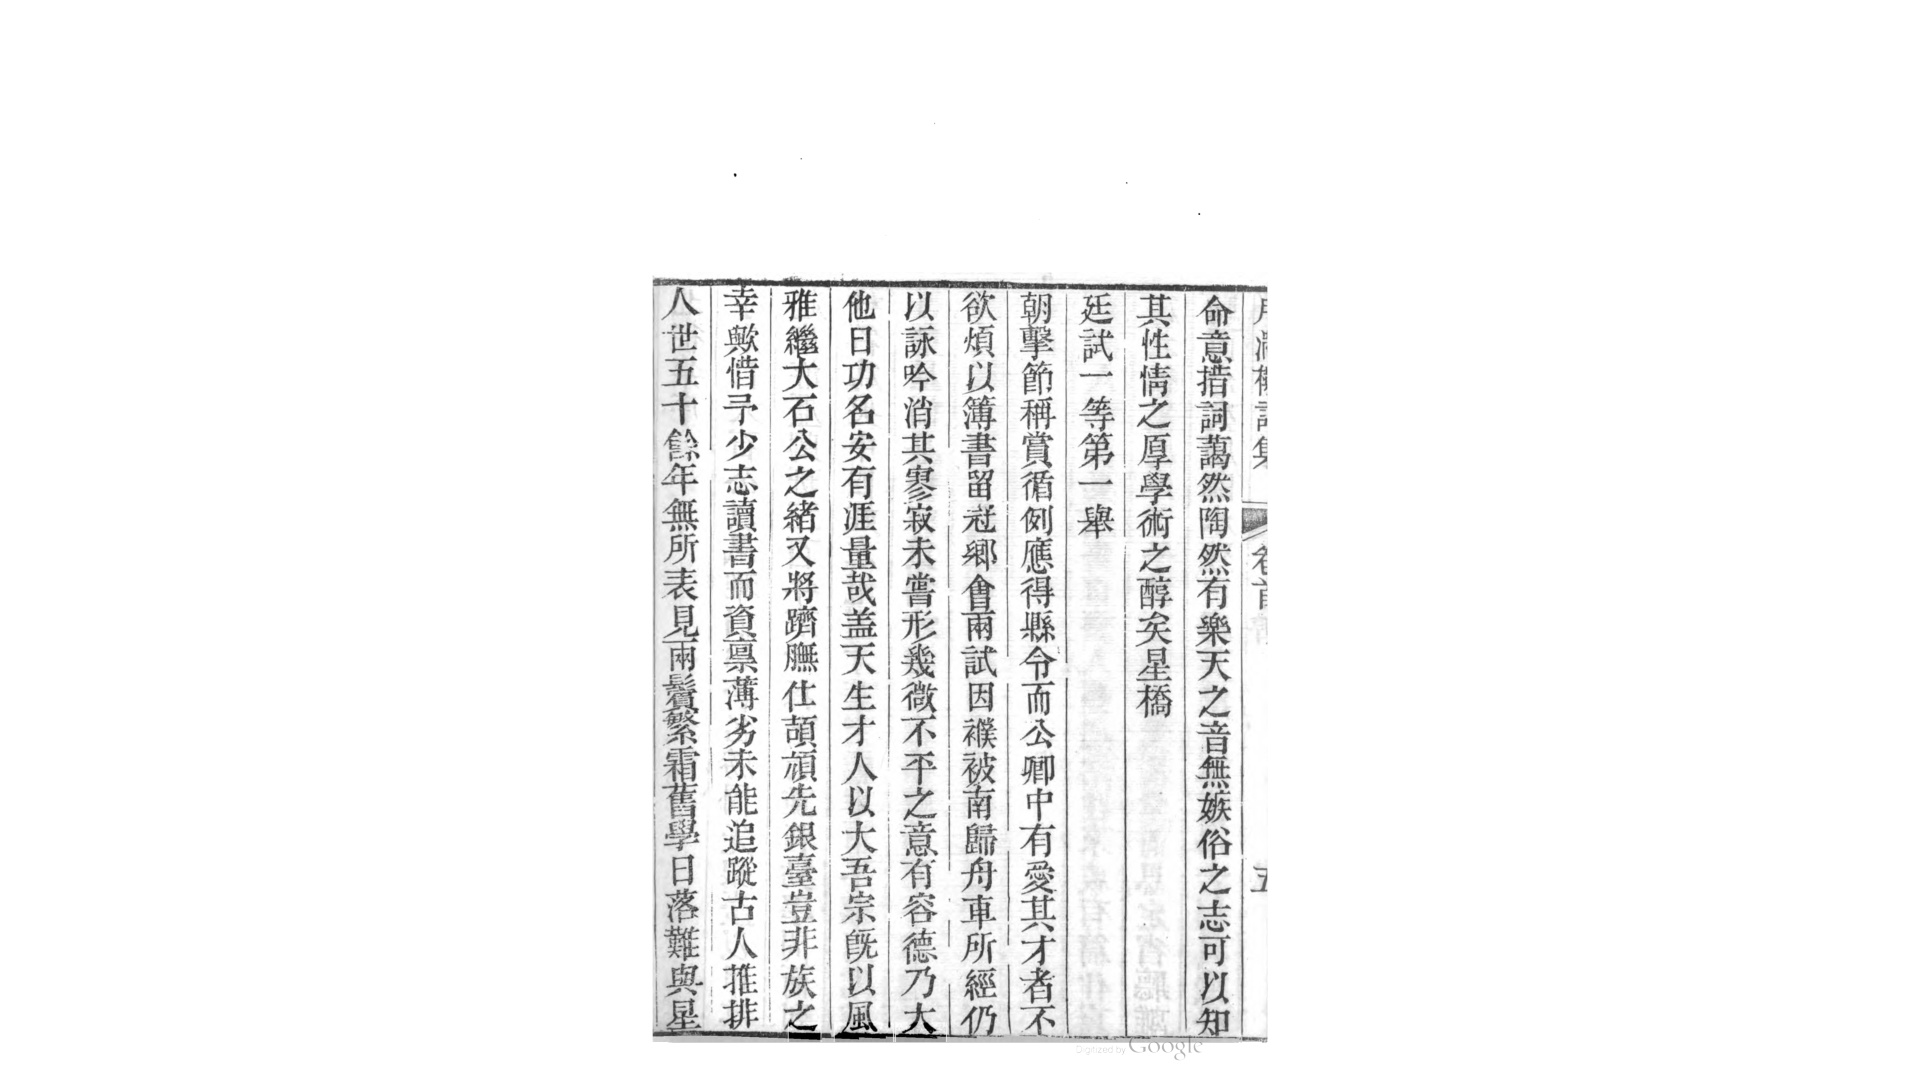 命意措詞藹然陶然有樂天之音無嫉俗之志可以知
其性情之厚學術之醇矣星橋
廷試一等第一舉
朝擊節稱賞循例應得縣令而公卿中有愛其才者不
欲煩以簿書留冠鄉會兩試因襆被南歸舟車所經仍
以詠吟消其寥寂未嘗形幾微不平之意有容德乃大
他日功名安有涯量哉盖天生才人以大吾宗旣以風
雅繼大石公之緒又將躋膴仕頡頏先銀臺豈非族之
幸歟惜予少志讀書而資稟薄劣未能追蹤古人推排
人世五十餘年無所表見兩鬢繁霜舊學日落難與星
Digitized by Google